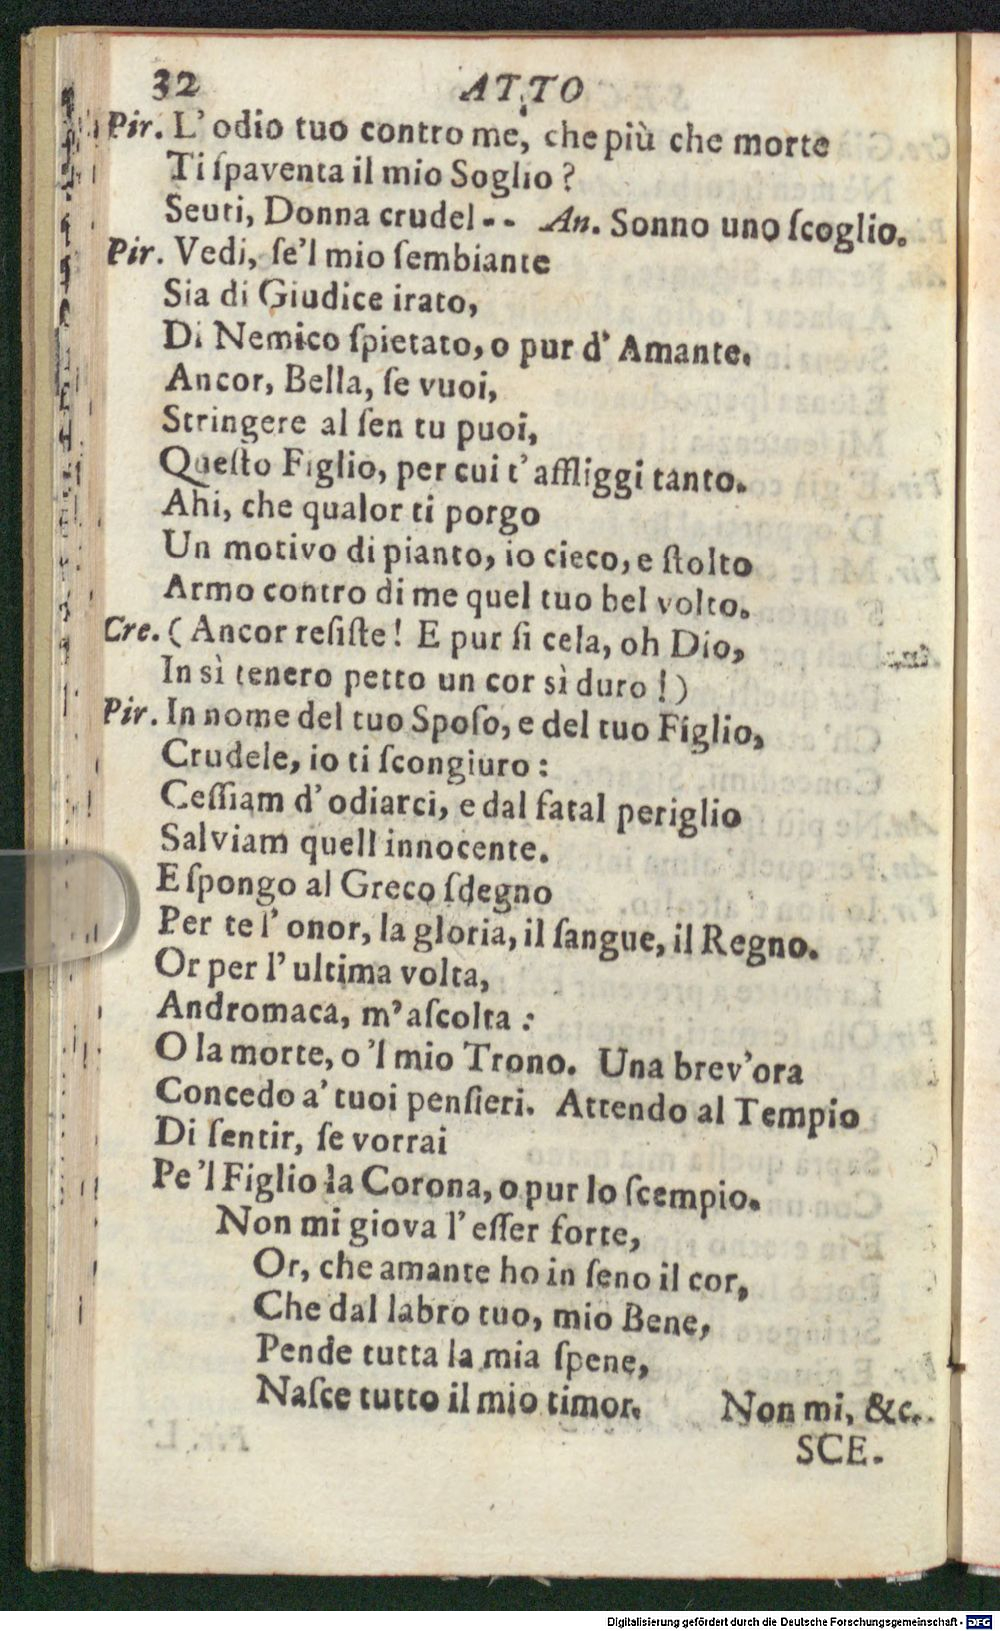 32 ATTO
Pir. L' odio tuo contro me, che più che morte
Ti ſpaventa il mio Soglio ?
Seuti, Donna crudel -- An. Sonno uno ſcoglio.
Pir. Vedi, ſe'l mio ſembiante
Sia di Giudice irato,
Di Nemico ſpietato, o pur d' Amante.
Ancor, Bella, ſe vuoi,
Stringere al ſen tu puoi,
Queſto Figlio, per cui t' affliggi tanto.
Ahi, che qualor ti porgo
Un motivo di pianto, io cieco, e ſtolto
Armo contro di me quel tuo bel volto.
Cre. ( Ancor reſiſte! E pur ſi cela, oh Dio,
In sì tenero petto un cor sì duro ! )
Pir. In nome del tuo Spoſo, e del tuo Figlio,
Crudele, io ti ſcongiuro :
Ceſſiam d' odiarci, e dal fatal periglio
Salviam quell innocente.
Eſpongo al Greco ſdegno
Per te l' onor, la gloria, il ſangue, il Regno.
Or per l' ultima volta,
Andromaca, m' aſcolta :
O la morte, o 'l mio Trono. Una brev'ora
Concedo a' tuoi penſieri. Attendo al Tempio
Di ſentir, ſe vorrai
Pe 'l Figlio la Corona, o pur lo ſcempio.
Non mi giova l' eſſer forte,
Or, che amante ho in ſeno il cor,
Che dal labro tuo, mio Bene,
Pende tutta la mia ſpene,
Naſce tutto il mio timor. Non mi, &c.
SCE.
Digitalisierung gefördert durch die Deutsche Forschungsgemeinschaft - DFG